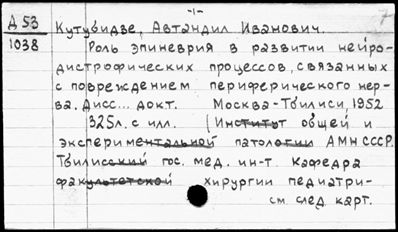 -1-
7
Д 53 Кутубидзе, Автандил Иванович.
1038 Роль эпиневрия в развитии нейро-
дистрофических процессов, связанных
с повреждением периферического нер-
ва. Дисс... докт. Москва-Тбилиси, 1952
325л. с илл. (Институт общей и
экспериментальной патологии АМН СССР.
Тбилисский гос. мед. ин-т. Кафедра
факультетской хирургии педиатри-
см след карт.